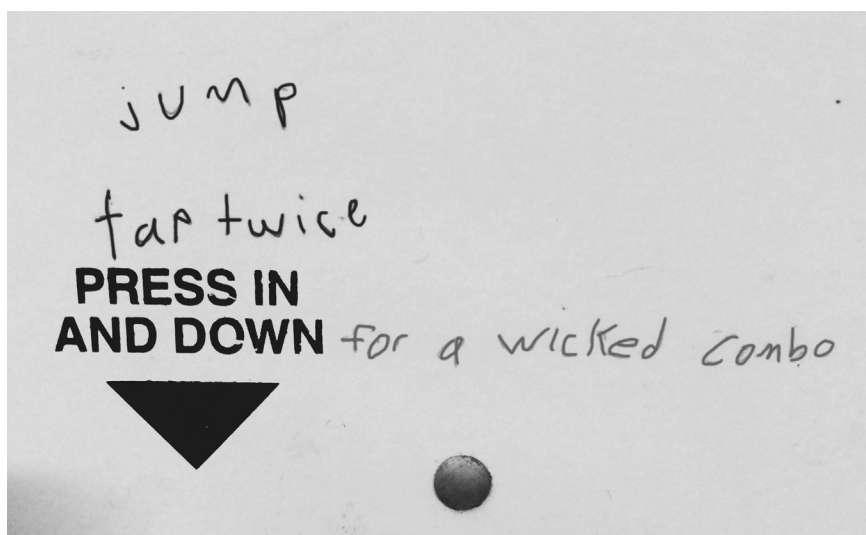 jump
tap twice
PRESS IN
AND DOWN for a wicked combo